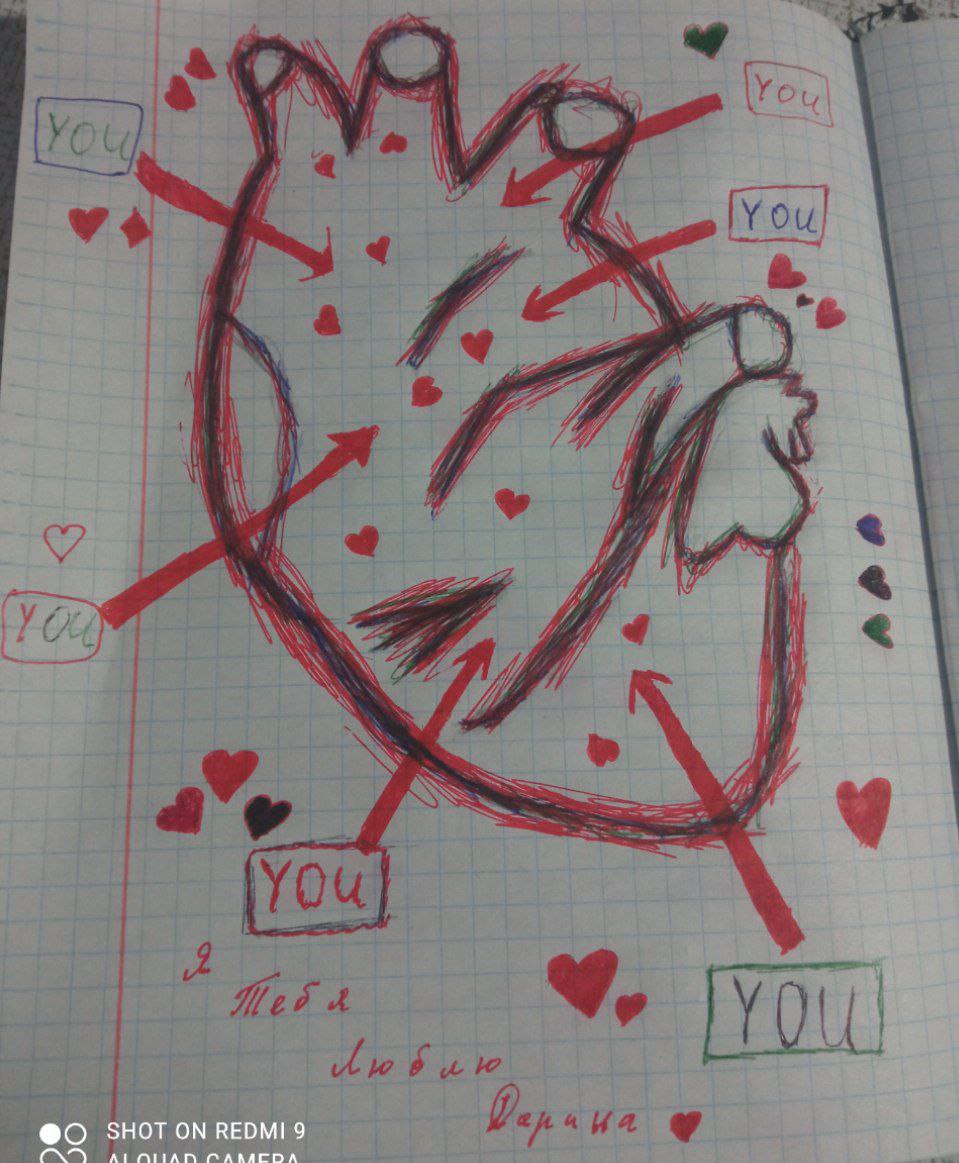 YOU
YOU
YOU
YOU
YOU
YOU
Я
Тебя
Люблю
Дарина
SHOT ON REDMI 9
AI QUAD CAMERA